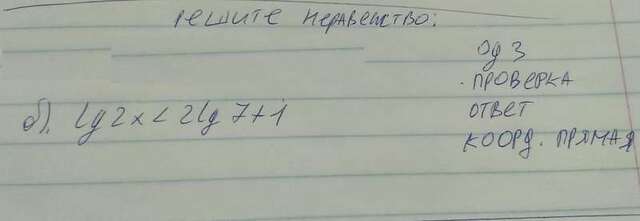 решите неравенство:
ОДЗ
ПРОВЕРКА
б). lg 2x < 2lg 7+1
ОТВЕТ
КООРД. ПРЯМАЯ